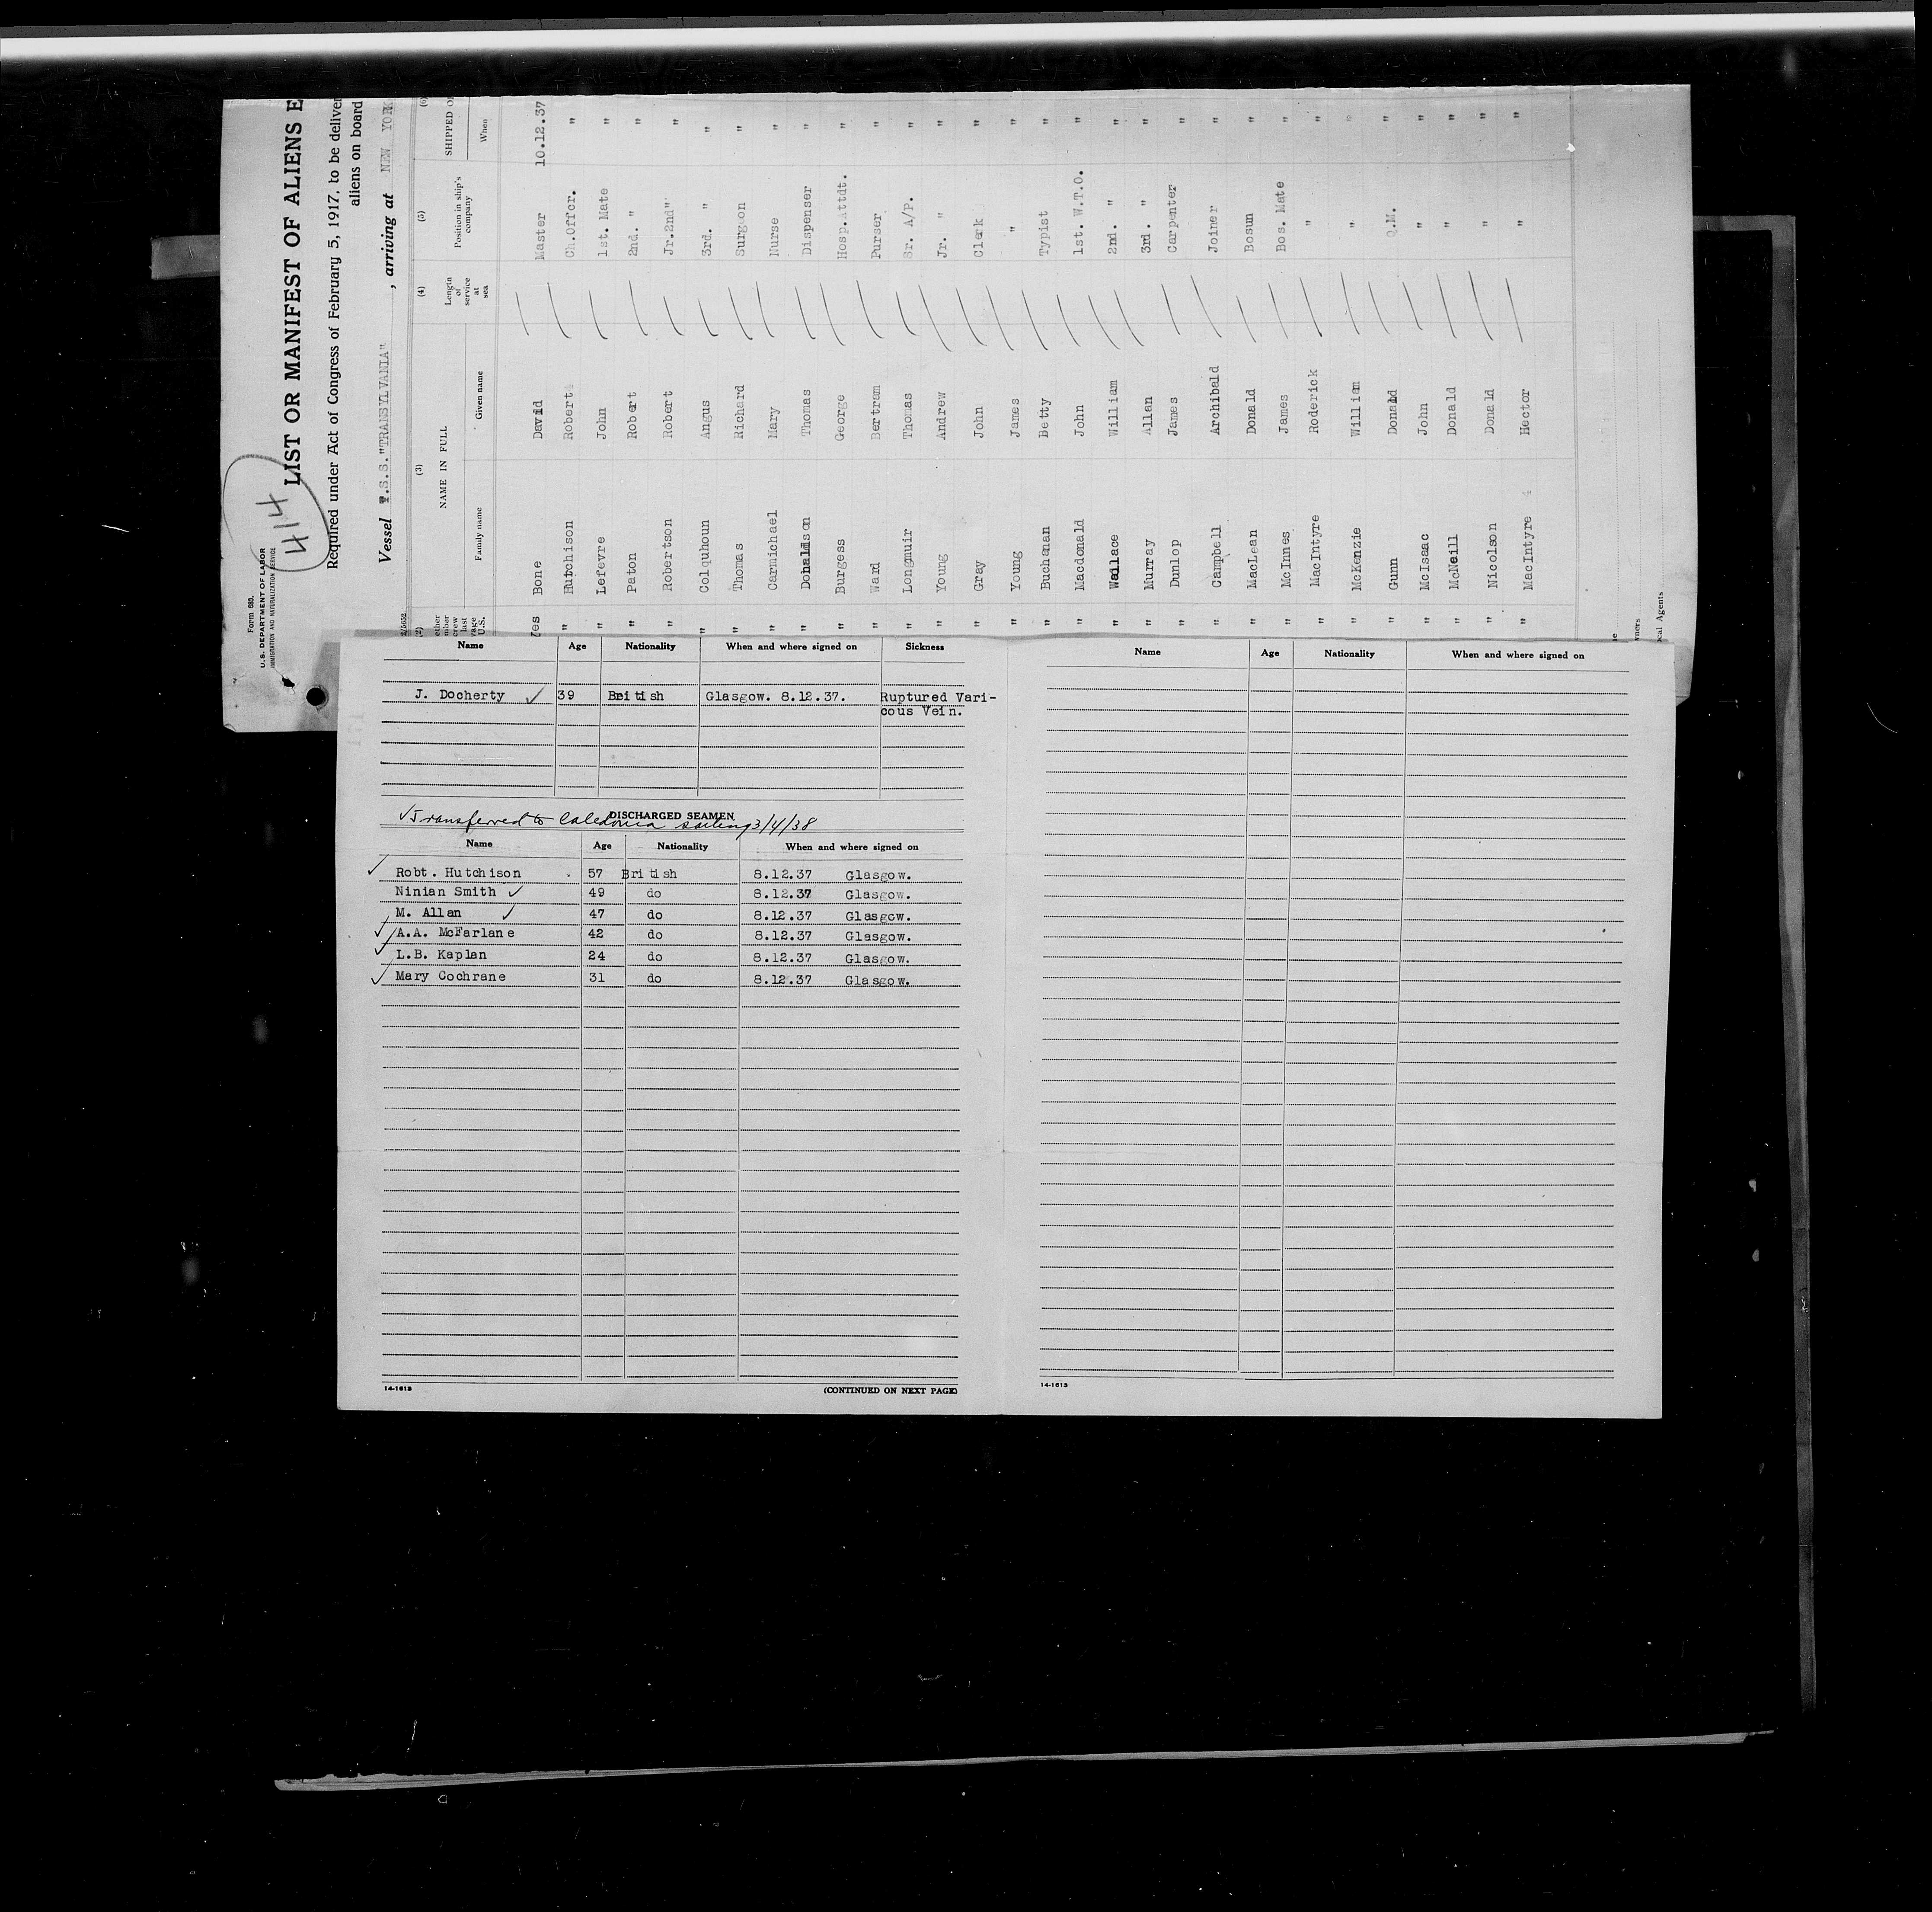 Form 680.
U.S. DEPARTMENT OF LABOR
IMMIGRATION AND NATURALIZATION SERVICE
414
LIST OR MANIFEST OF ALIENS E
Required under Act of Congress of February 5, 1917, to be deliver
aliens on board
Vessel T.S.S."TRANSYLVANIA", arriving at NEW YORK
(2) (3) (4) (5) (6)
NAME IN FULL Length of service at sea Position in ship's company SHIPPED O
Family name Given name When
Yes Bone David Master 10.12.37
" Hutchison Robert Ch.Offcr. "
" Lefevre John 1st. Mate "
" Paton Robert 2nd. " "
" Robertson Robert Jr.2nd" "
" Colquhoun Angus 3rd. " "
" Thomas Richard Surgeon "
" Carmichael Mary Nurse "
" Donaldson Thomas Dispenser "
" Burgess George Hosp.Attdt. "
" Ward Bertram Purser "
" Longmuir Thomas Sr. A/P. "
" Young Andrew Jr. " "
" Gray John Clerk "
" Young James " "
" Buchanan Betty Typist "
" Macdonald John 1st. W.T.O. "
" Wallace William 2nd. " "
" Murray Allan 3rd. " "
" Dunlop James Carpenter "
" Campbell Archibald Joiner "
" MacLean Donald Bosun "
" McInnes James Bos. Mate "
" MacIntyre Roderick " "
" McKenzie William " "
" Gunn Donald Q.M. "
" McIsaac John " "
" McNeill Donald " "
" Nicolson Donald " "
" MacIntyre Hector " "
Name Age Nationality When and where signed on Sickness
J. Docherty 39 British Glasgow. 8.12.37. Ruptured Vari-
cous Vein.
DISCHARGED SEAMEN
Transferred to Caledonia sailing 3/4/38
Name Age Nationality When and where signed on
Robt. Hutchison 57 British 8.12.37 Glasgow.
Ninian Smith 49 do 8.12.37 Glasgow.
M. Allan 47 do 8.12.37 Glasgow.
A.A. McFarlane 42 do 8.12.37 Glasgow.
L.B. Kaplan 24 do 8.12.37 Glasgow.
Mary Cochrane 31 do 8.12.37 Glasgow.
14-1613
(CONTINUED ON NEXT PAGE)
Name Age Nationality When and where signed on
14-1613